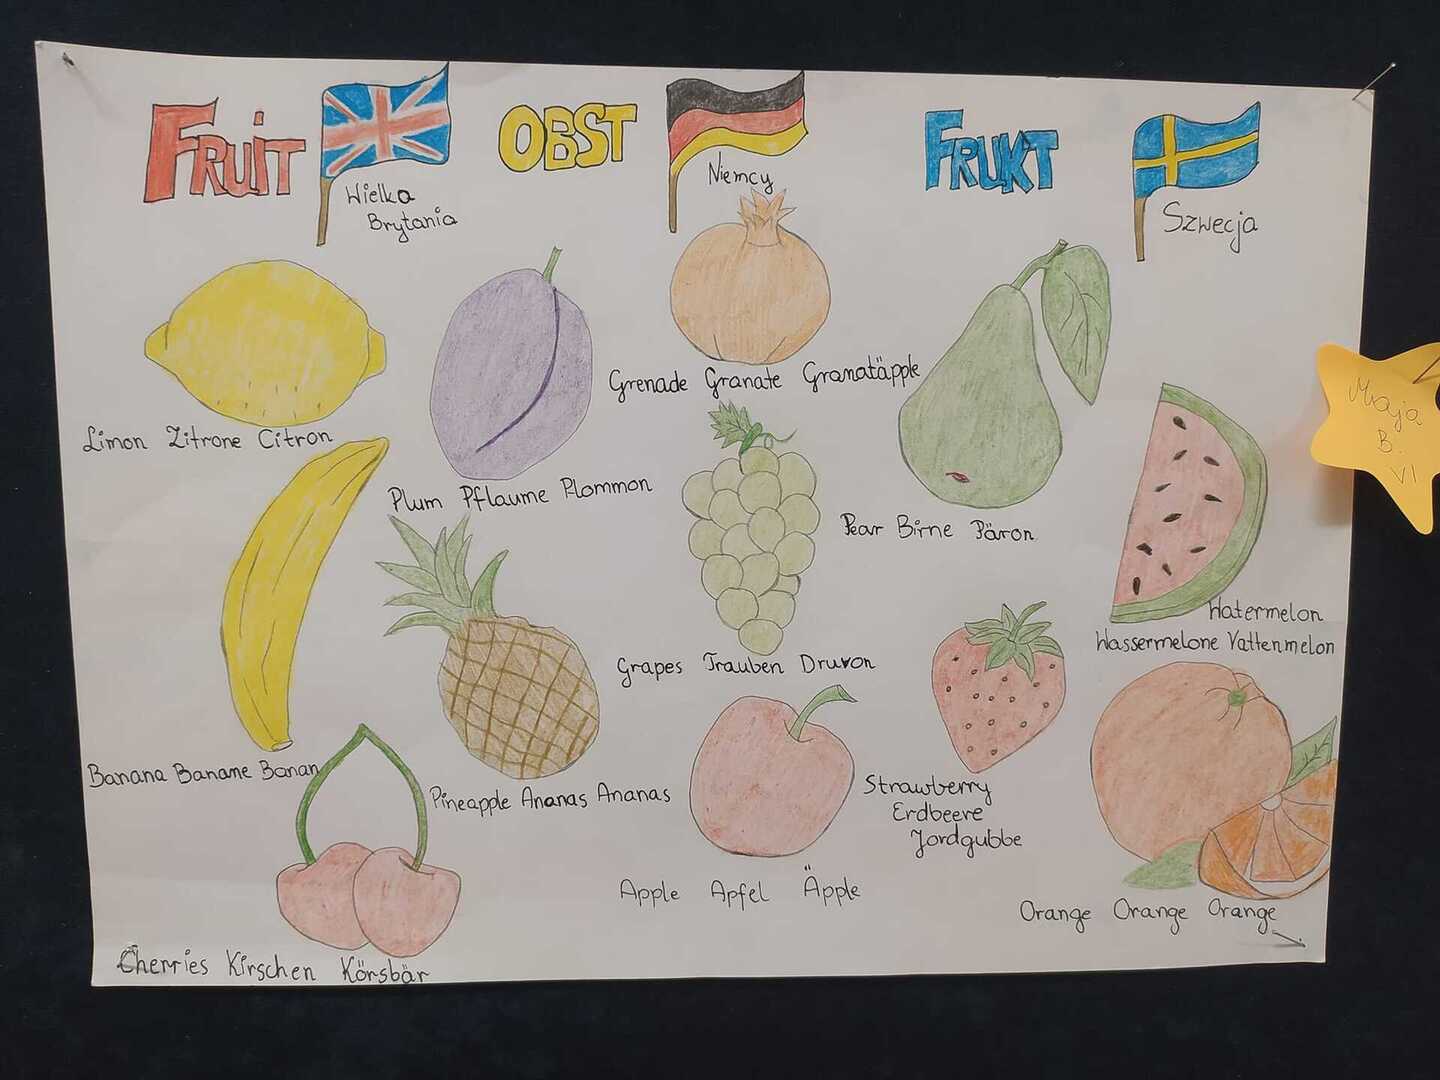 FRUIT
Wielka
Brytania
OBST
Niemcy
FRUKT
Szwecja
Limon Zitrone Citron
Plum Pflaume Plommon
Grenade Granate Granatäpple
Pear Birne Päron
Watermelon
Wassermelone Vattenmelon
Banana Banane Banan
Pineapple Ananas Ananas
Grapes Trauben Druvon
Strawberry
Erdbeere
Jordgubbe
Cherries Kirschen Körsbär
Apple Apfel Äpple
Orange Orange Orange
Maja
B.
VI